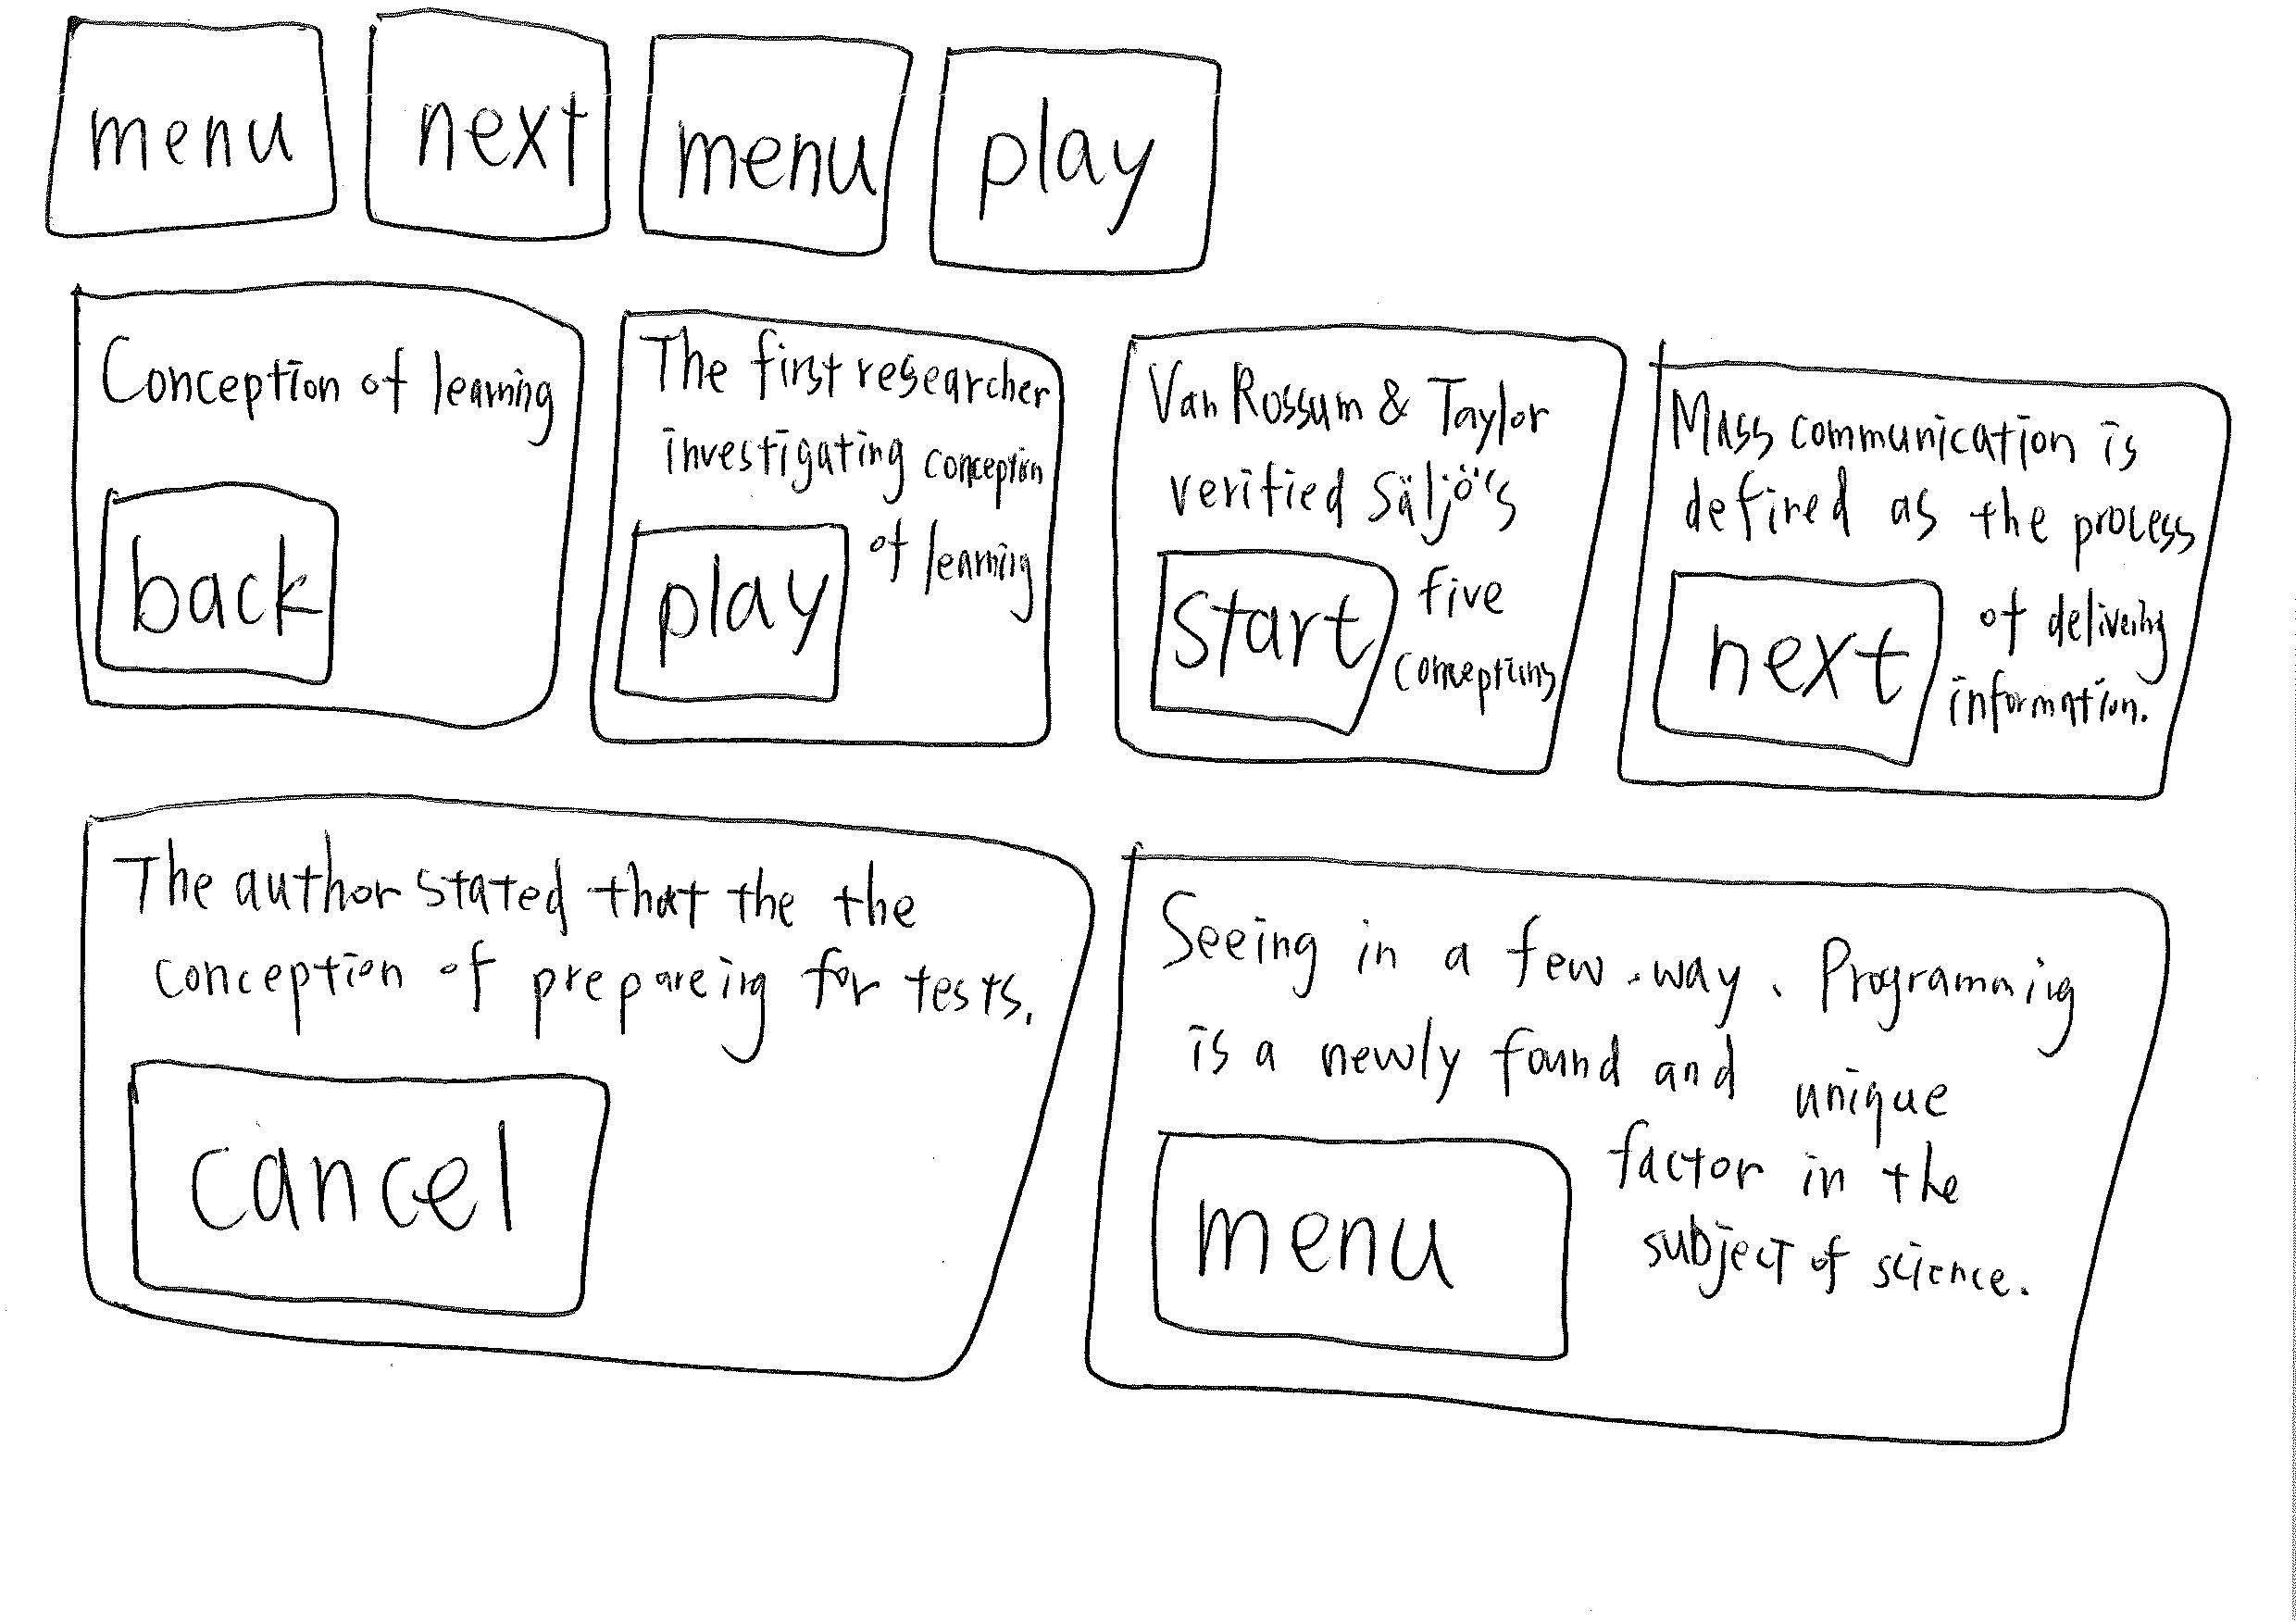 menu
next
menu
play
Conception of learning
back
The first researcher
investigating conception
of learning
play
Van Rossum & Taylor
verified Säljö's
five
conceptions
start
Mass communication is
defined as the process
of delivering
information.
next
The author stated that the the
conception of prepareing for tests.
cancel
Seeing in a few.way. Programming
is a newly found and unique
factor in the
subject of science.
menu